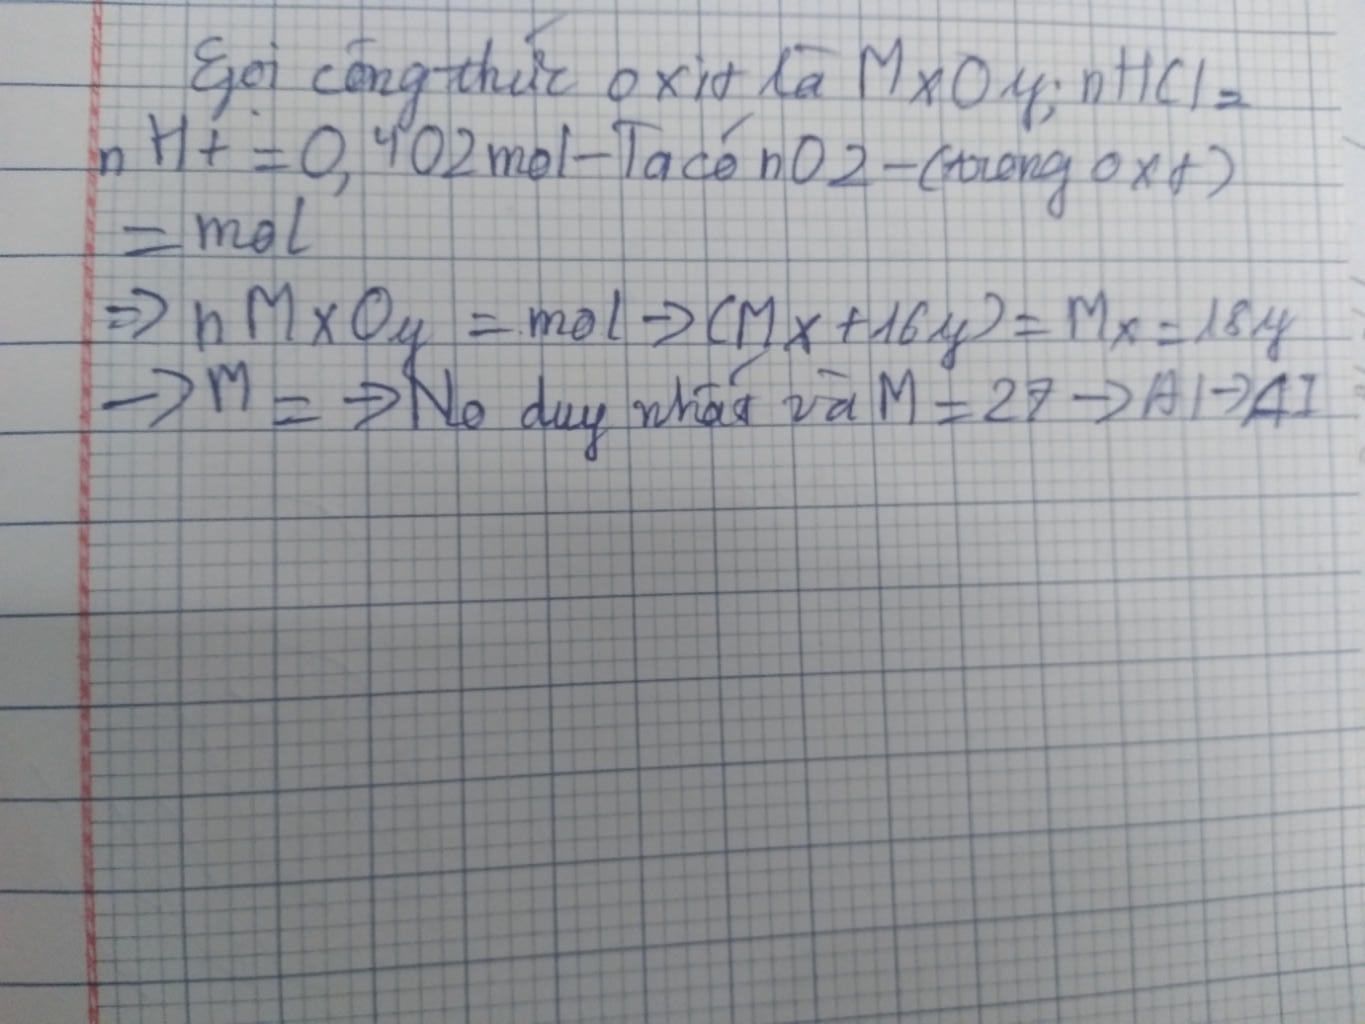 Gọi công thức oxit là MxOy; nHCl =
nH+ = 0,402mol - Ta có nO2 - (trong oxt)
= mol
=> nMxOy = mol -> (Mx + 16y) = Mx = 18y
-> M = => No duy nhất và M = 27 -> Al -> AI